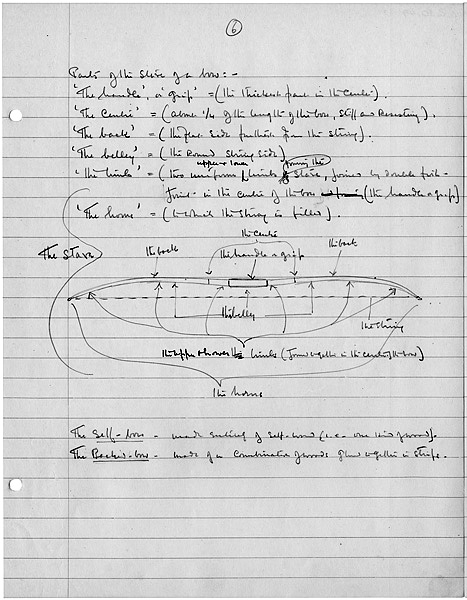 6
Parts of the Stave of a bow: -
'The handle', or 'grip' = (the thickest part in the Centre).
'The Centre' = (about ¼ of the length of the bow, Stiff and Resisting).
'The back' = (the flat Side furthest from the String).
'The belley' = (the Round String Side)
upper & lower forming the
'The limbs' = (two uniform limbs Stave, joined by double fish-
joint - in the Centre of the bow (the handle or grip)
'The horns' = (to which the String is fitted).
the Centre
The Stave the back the handle or grip the back
the belley
the String
the upper & lower limbs (Joined together in the Centre of the bow)
the horns
The Self-bow - made entirely of Self-wood (i.e. one kind of wood).
The Backed-bow - made of a Combination of woods glued together in Strips.